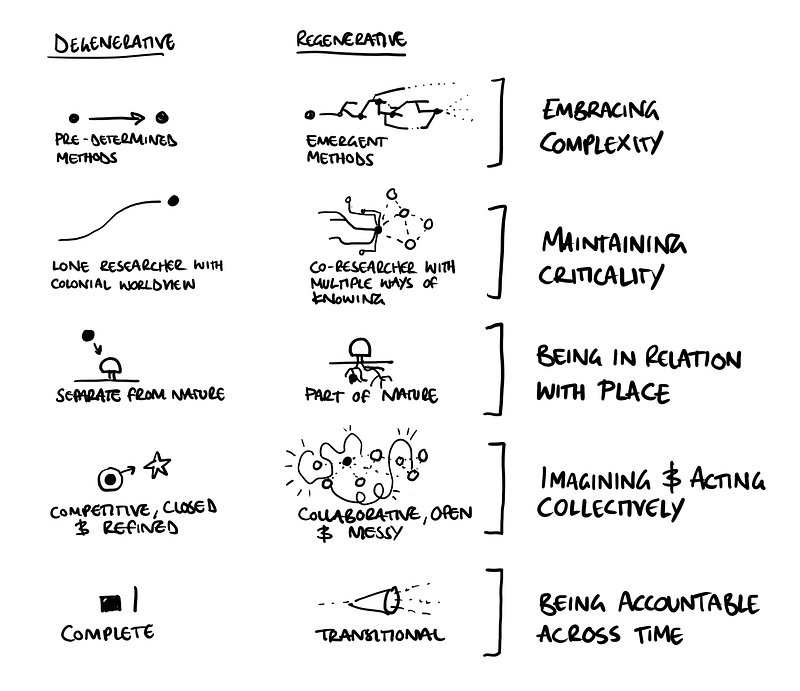 DEGENERATIVE
REGENERATIVE
PRE-DETERMINED
METHODS
EMERGENT
METHODS
EMBRACING
COMPLEXITY
LONE RESEARCHER WITH
COLONIAL WORLDVIEW
CO-RESEARCHER WITH
MULTIPLE WAYS OF
KNOWING
MAINTAINING
CRITICALITY
SEPARATE FROM NATURE
PART OF NATURE
BEING IN RELATION
WITH PLACE
COMPETITIVE, CLOSED
& REFINED
COLLABORATIVE, OPEN
& MESSY
IMAGINING & ACTING
COLLECTIVELY
COMPLETE
TRANSITIONAL
BEING ACCOUNTABLE
ACROSS TIME